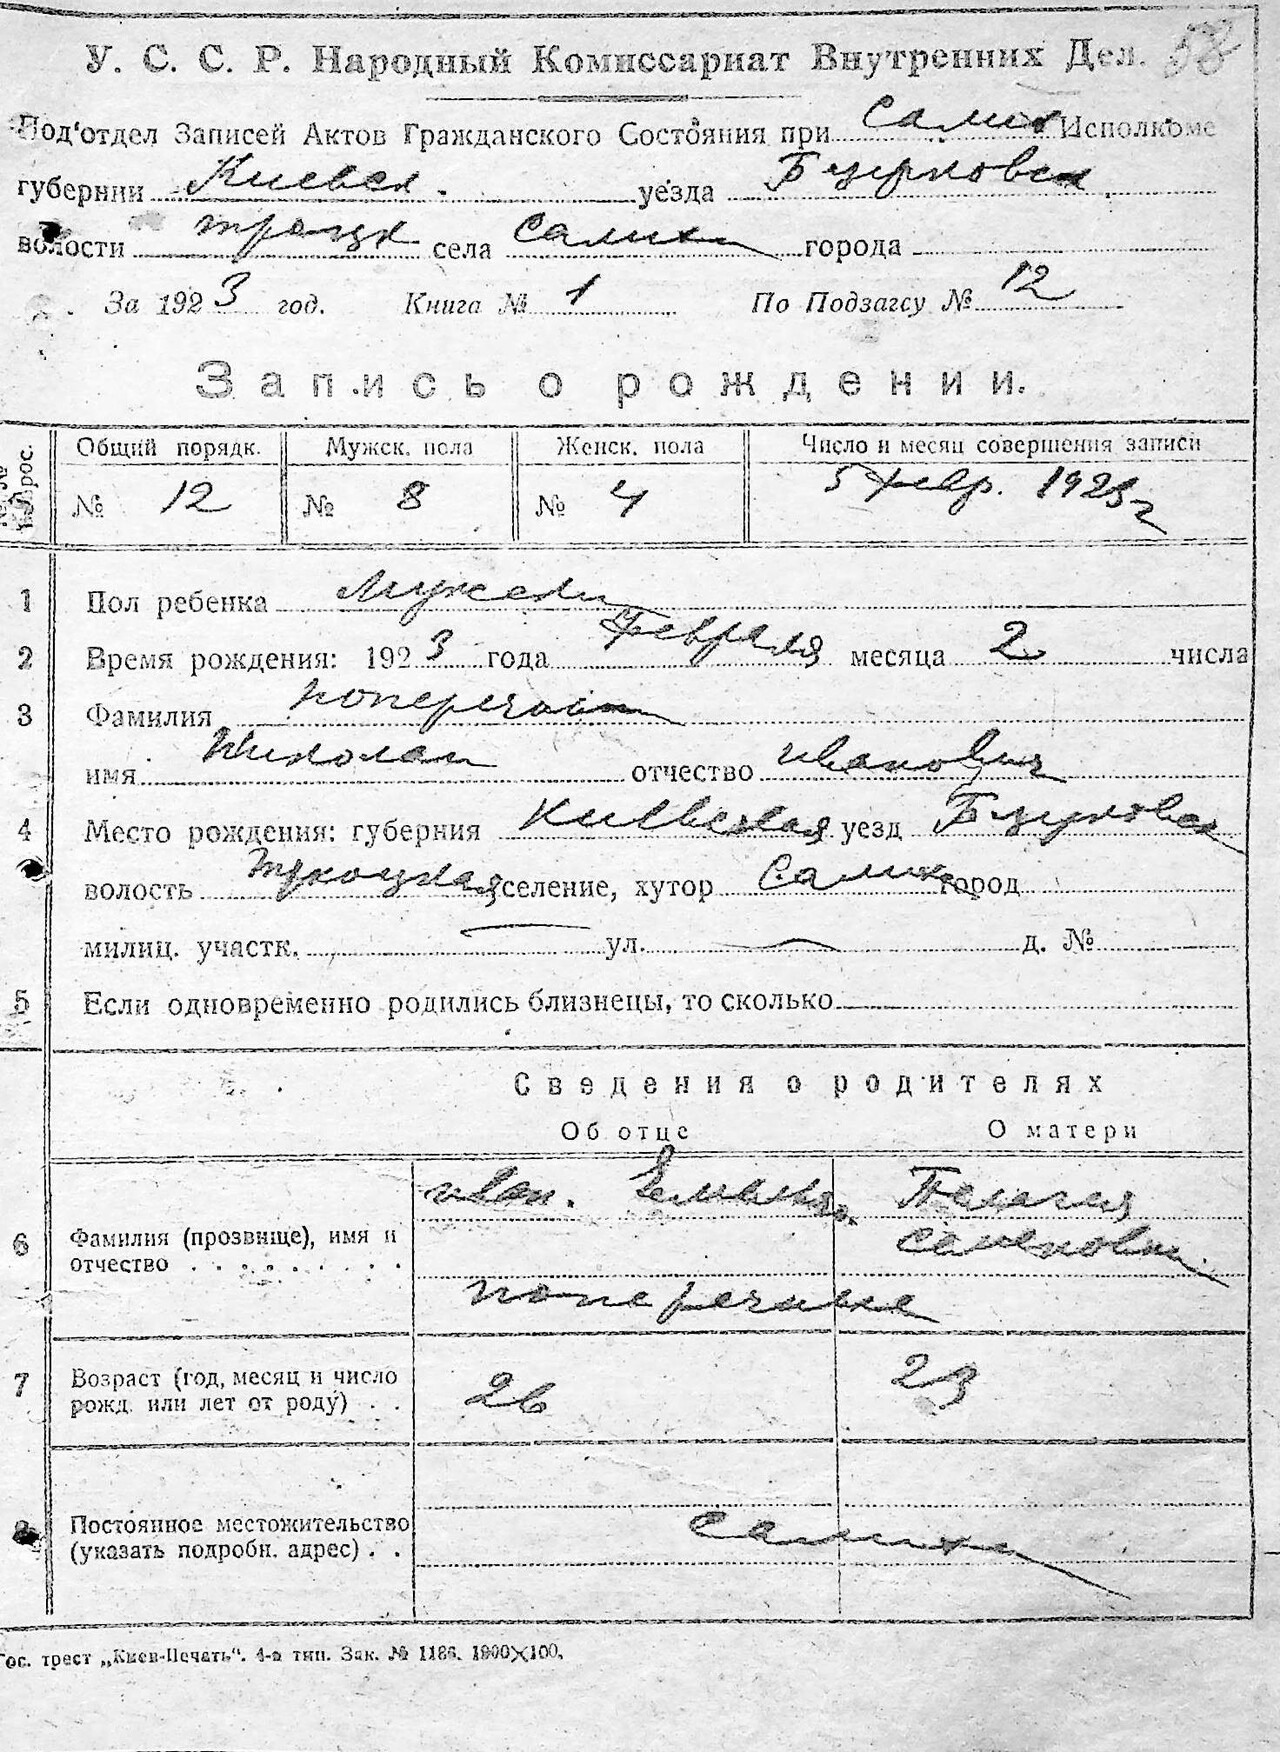 У. С. С. Р. Народный Комиссариат Внутренних Дел. 58
Под'отдел Записей Актов Гражданского Состояния при Исполкоме
губернии Киевск. уезда Б церковск
волости села города
За 1923 год. Книга № 1 По Подзагсу № 12
Запись о рождении.
№№ вопрос. Общий порядк. Мужск. пола Женск. пола Число и месяц совершения записи
№ 12 № 8 № 4 5 февр. 1923 г
1 Пол ребенка Мужски
2 Время рождения: 1923 года Февраля месяца 2 числа
3 Фамилия
имя Николай отчество иванович
4 Место рождения: губерния Киевская уезд Б церковск
волость селение, хутор город
милиц. участк. — ул. — д. №
5 Если одновременно родились близнецы, то сколько
Сведения о родителях
Об отце О матери
иван. Пелагея
6 Фамилия (прозвище), имя и отчество . . . . . . . . . Семеновна
7 Возраст (год, месяц и число рожд. или лет от роду) . . 26 23
8 Постоянное местожительство
(указать подробн. адрес) . .
Гос. трест „Киев-Печать“. 4-а тип. Зак. № 1186. 1900×100.